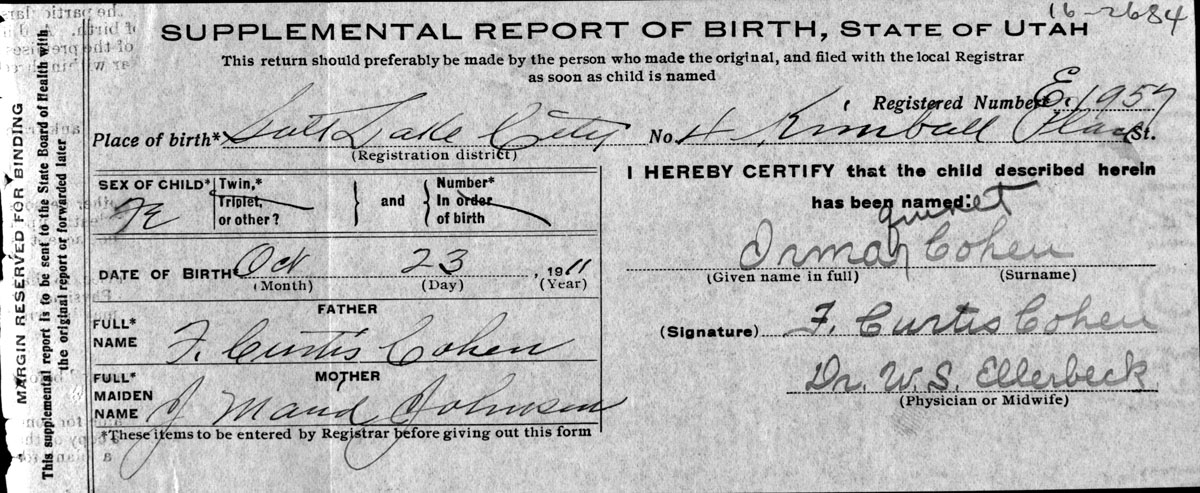 16-2684
SUPPLEMENTAL REPORT OF BIRTH, STATE OF UTAH
This return should preferably be made by the person who made the original, and filed with the local Registrar
as soon as child is named
Registered Number E. 1957
Place of birth* Salt Lake City No. 4 Kimball Place St.
(Registration district)
SEX OF CHILD* FE
Twin,*
Triplet,
or other?
and
Number*
In order
of birth
DATE OF BIRTH* Oct 23, 1911
(Month) (Day) (Year)
FATHER
FULL*
NAME F. Curtis Cohen
MOTHER
FULL*
MAIDEN
NAME J Maud Johnson
*These items to be entered by Registrar before giving out this form
I HEREBY CERTIFY that the child described herein
has been named:
Irma Cohen
(Given name in full) (Surname)
(Signature) F. Curtis Cohen
Dr. W. S. Ellerbeck
(Physician or Midwife)
MARGIN RESERVED FOR BINDING
This supplemental report is to be sent to the State Board of Health with
the original report or forwarded later